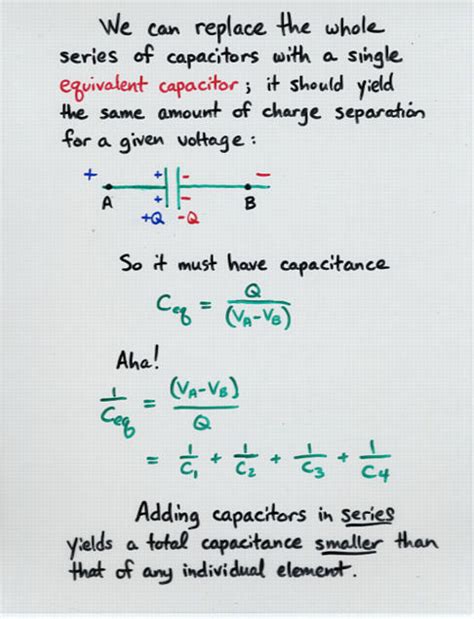 We can replace the whole
series of capacitors with a single
equivalent capacitor; it should yield
the same amount of charge separation
for a given voltage:
+ + - -
A + - B
+Q -Q
So it must have capacitance
Ceq = Q / (VA-VB)
Aha!
1/Ceq = (VA-VB) / Q
= 1/C1 + 1/C2 + 1/C3 + 1/C4
Adding capacitors in series
yields a total capacitance smaller than
that of any individual element.